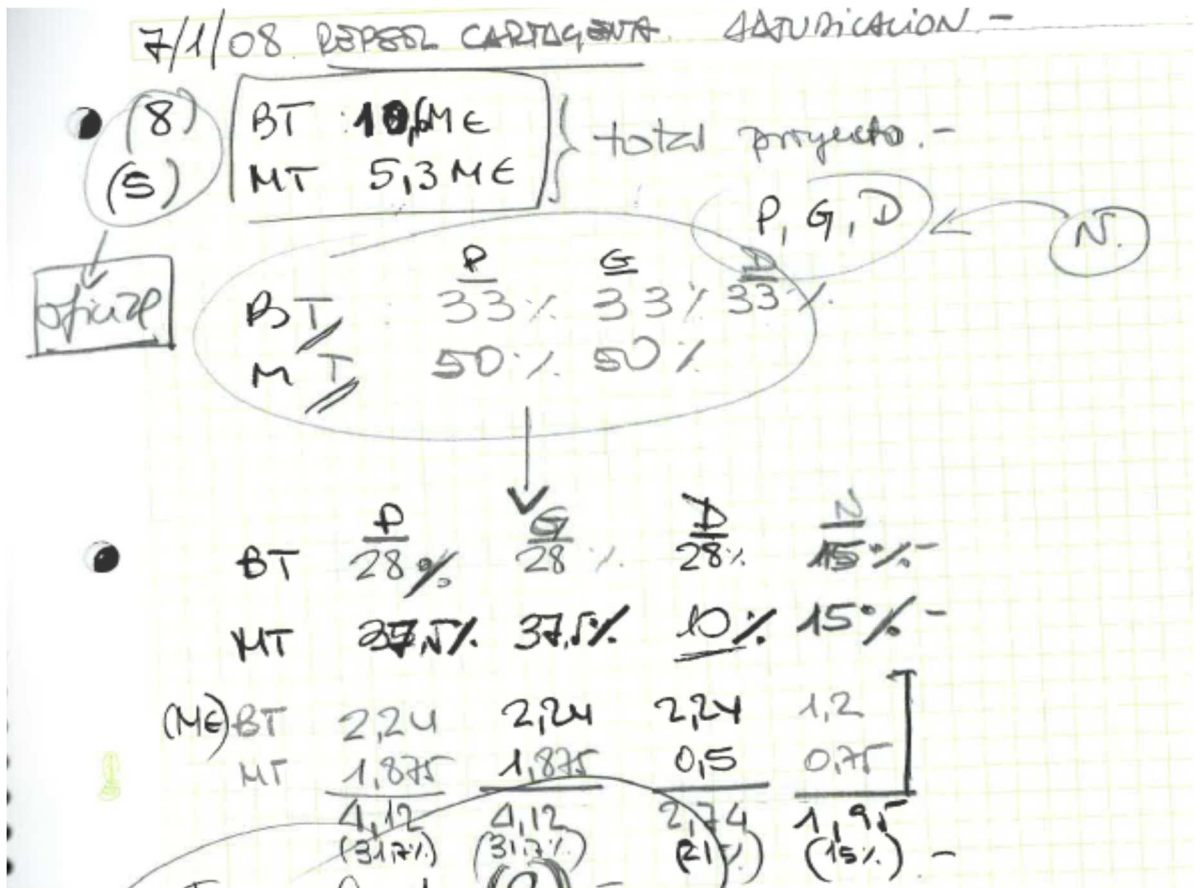 7/1/08 REPSOL CARTAGENA. ADJUDICACION. -
(8) BT 10,6 M€ } total proyecto. -
(5) MT 5,3 M€
P, G, D ← N.
oficial
P G D
BT 33% 33% 33%
MT 50% 50%
P G D N
BT 28% 28% 28% 15% -
MT 37,5% 37,5% 10% 15% -
(M€) BT 2,24 2,24 2,24 1,2
MT 1,875 1,875 0,5 0,75
4,12 4,12 2,74 1,95
(31,7%) (31,7%) (21%) (15%) -